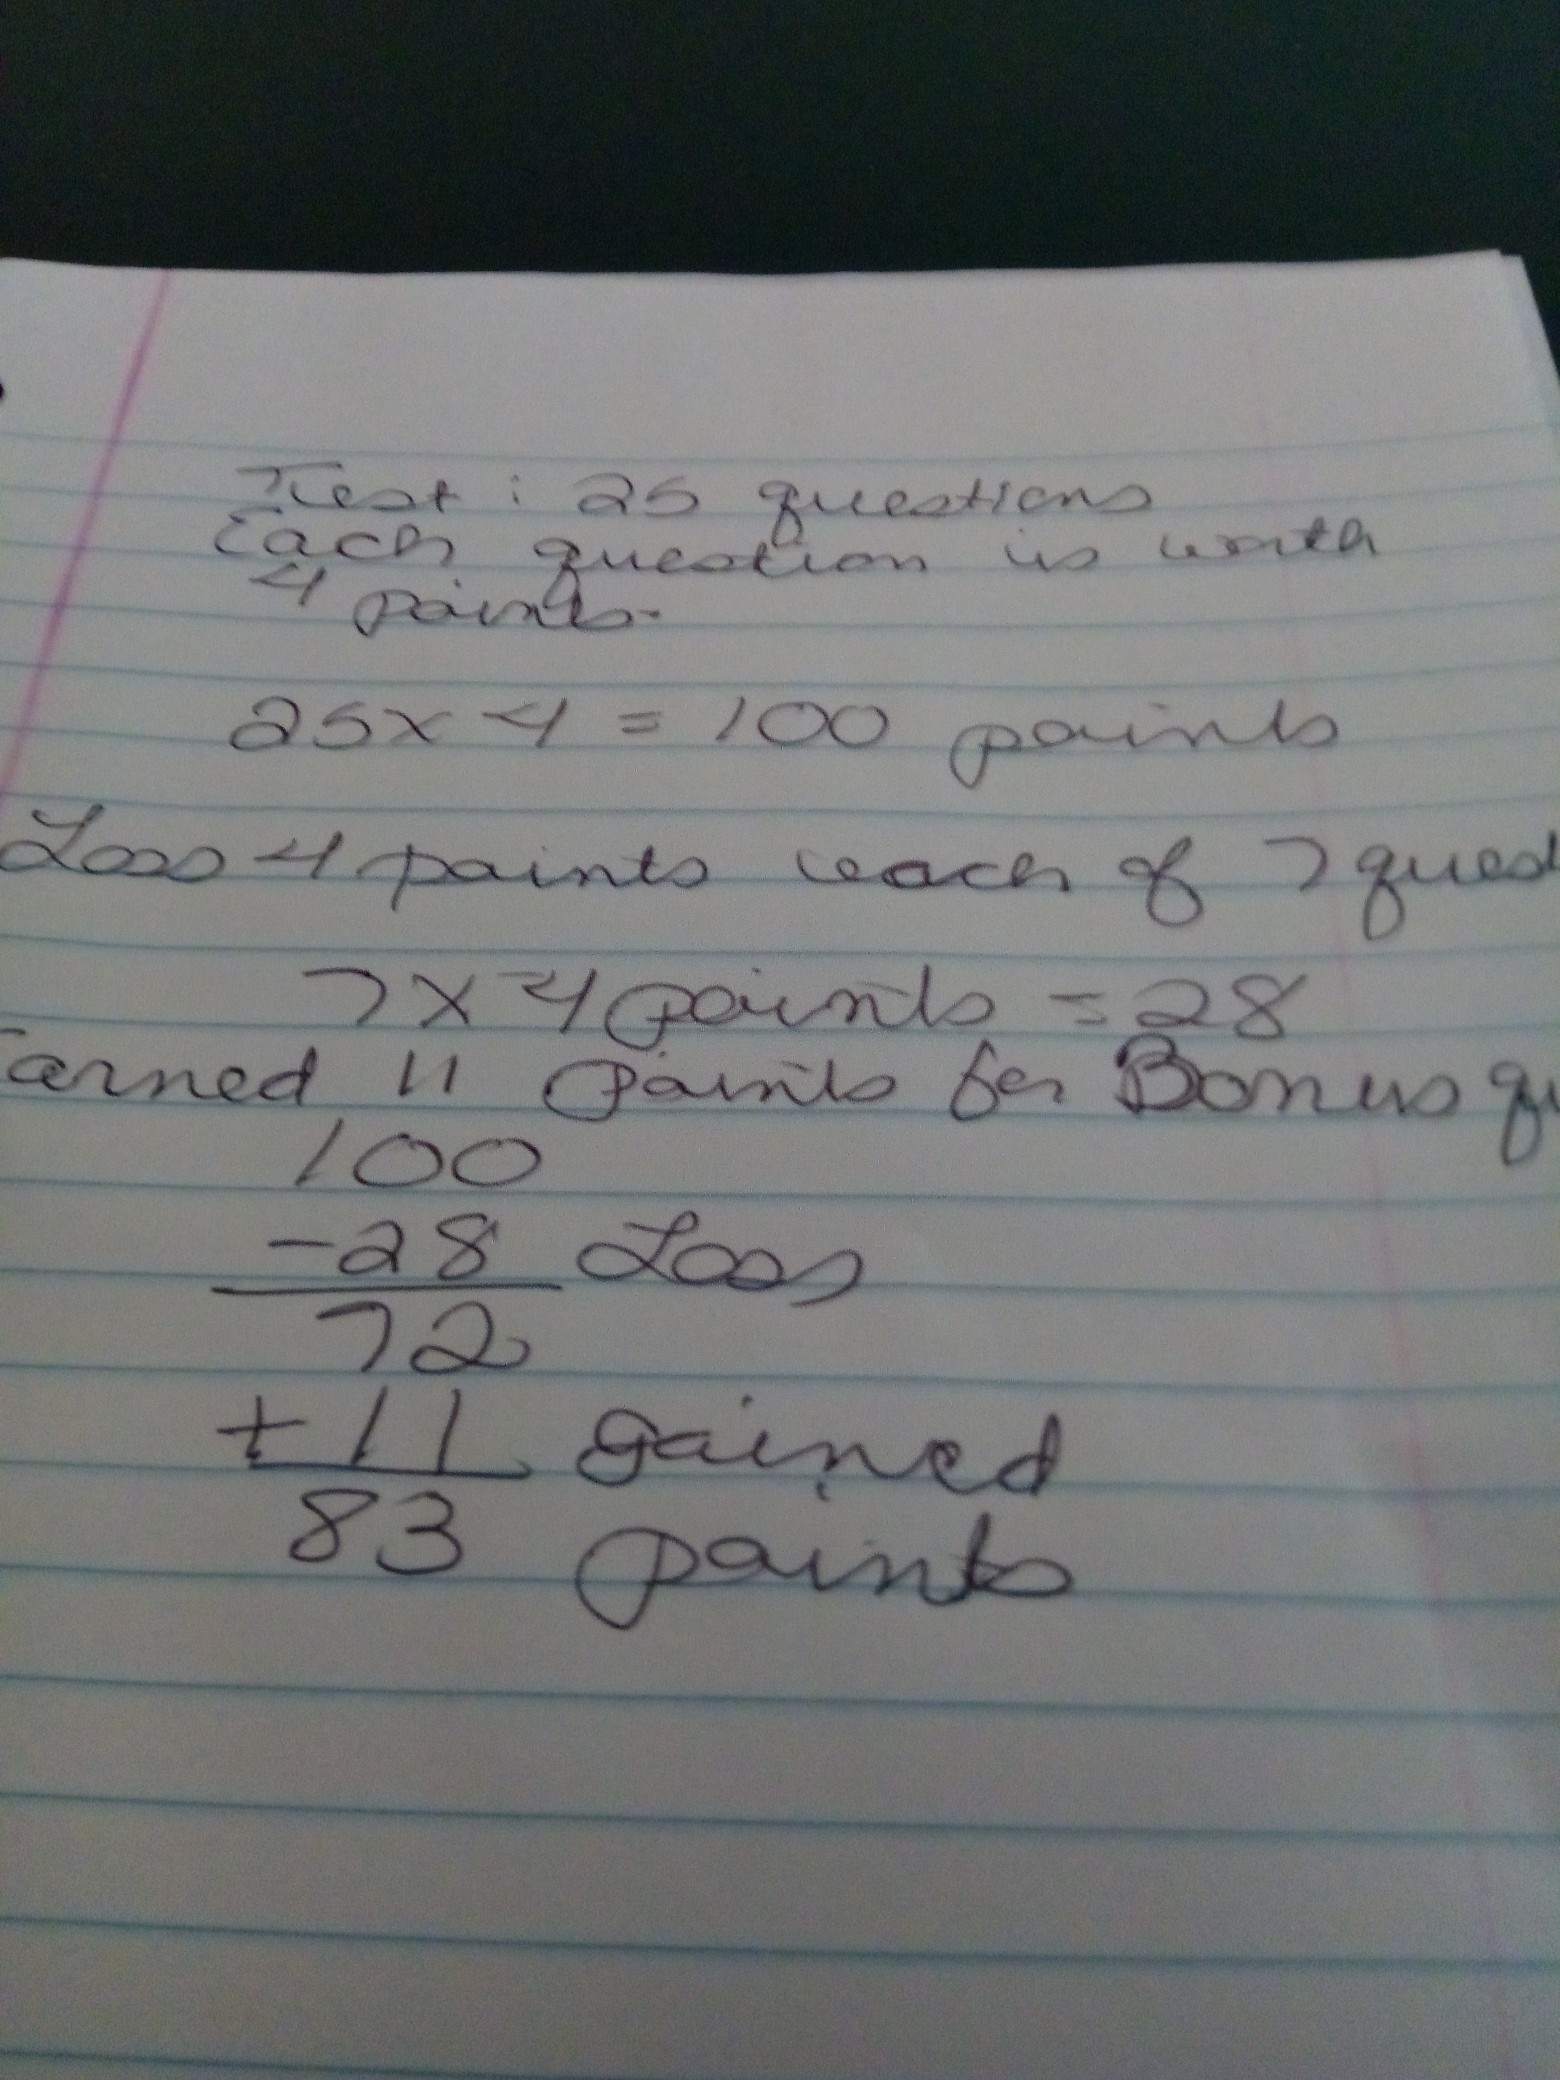 Test : 25 questions
Each question is worth
4 points.
25 x 4 = 100 points
Loss 4 points each of 7 quest
7 x 4 points = 28
arned 11 points for Bonus qu
100
-28 Loss
72
+11 gained
83 points